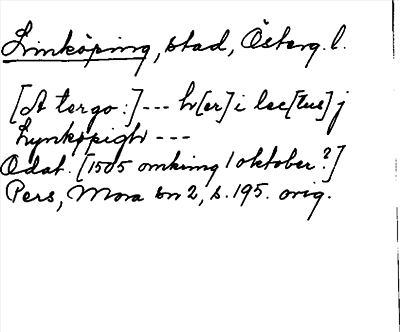 Linköping, stad, Österg. l.
[A tergo:] --- h[er] i lec[tus] j
Lynkøpigh ---
Odat. [1505 omkring 1 oktober?]
Pers, Mora bn 2, s. 195. orig.